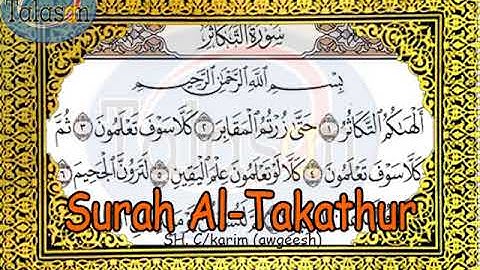 Talasan
سُورَةُ التَّكَاثُرِ
بِسْمِ اللَّهِ الرَّحْمَٰنِ الرَّحِيمِ
أَلْهَىٰكُمُ ٱلتَّكَاثُرُ ١ حَتَّىٰ زُرْتُمُ ٱلْمَقَابِرَ ٢ كَلَّا سَوْفَ تَعْلَمُونَ ٣ ثُمَّ
كَلَّا سَوْفَ تَعْلَمُونَ ٤ كَلَّا لَوْ تَعْلَمُونَ عِلْمَ ٱلْيَقِينِ ٥ لَتَرَوُنَّ ٱلْجَحِيمَ ٦
Surah Al-Takathur
SH. C/karim (awgeesh)